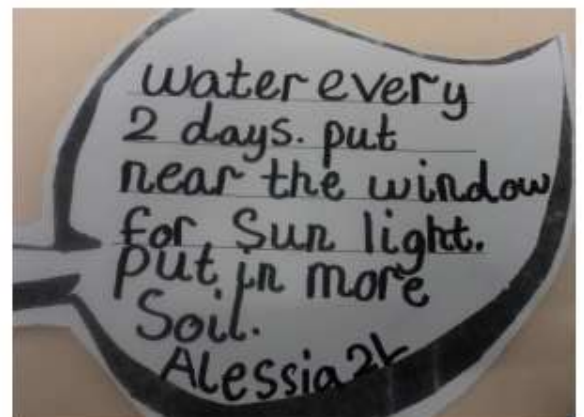 water every
2 days. put
near the window
for Sun light.
put in more
Soil.
Alessia 2L